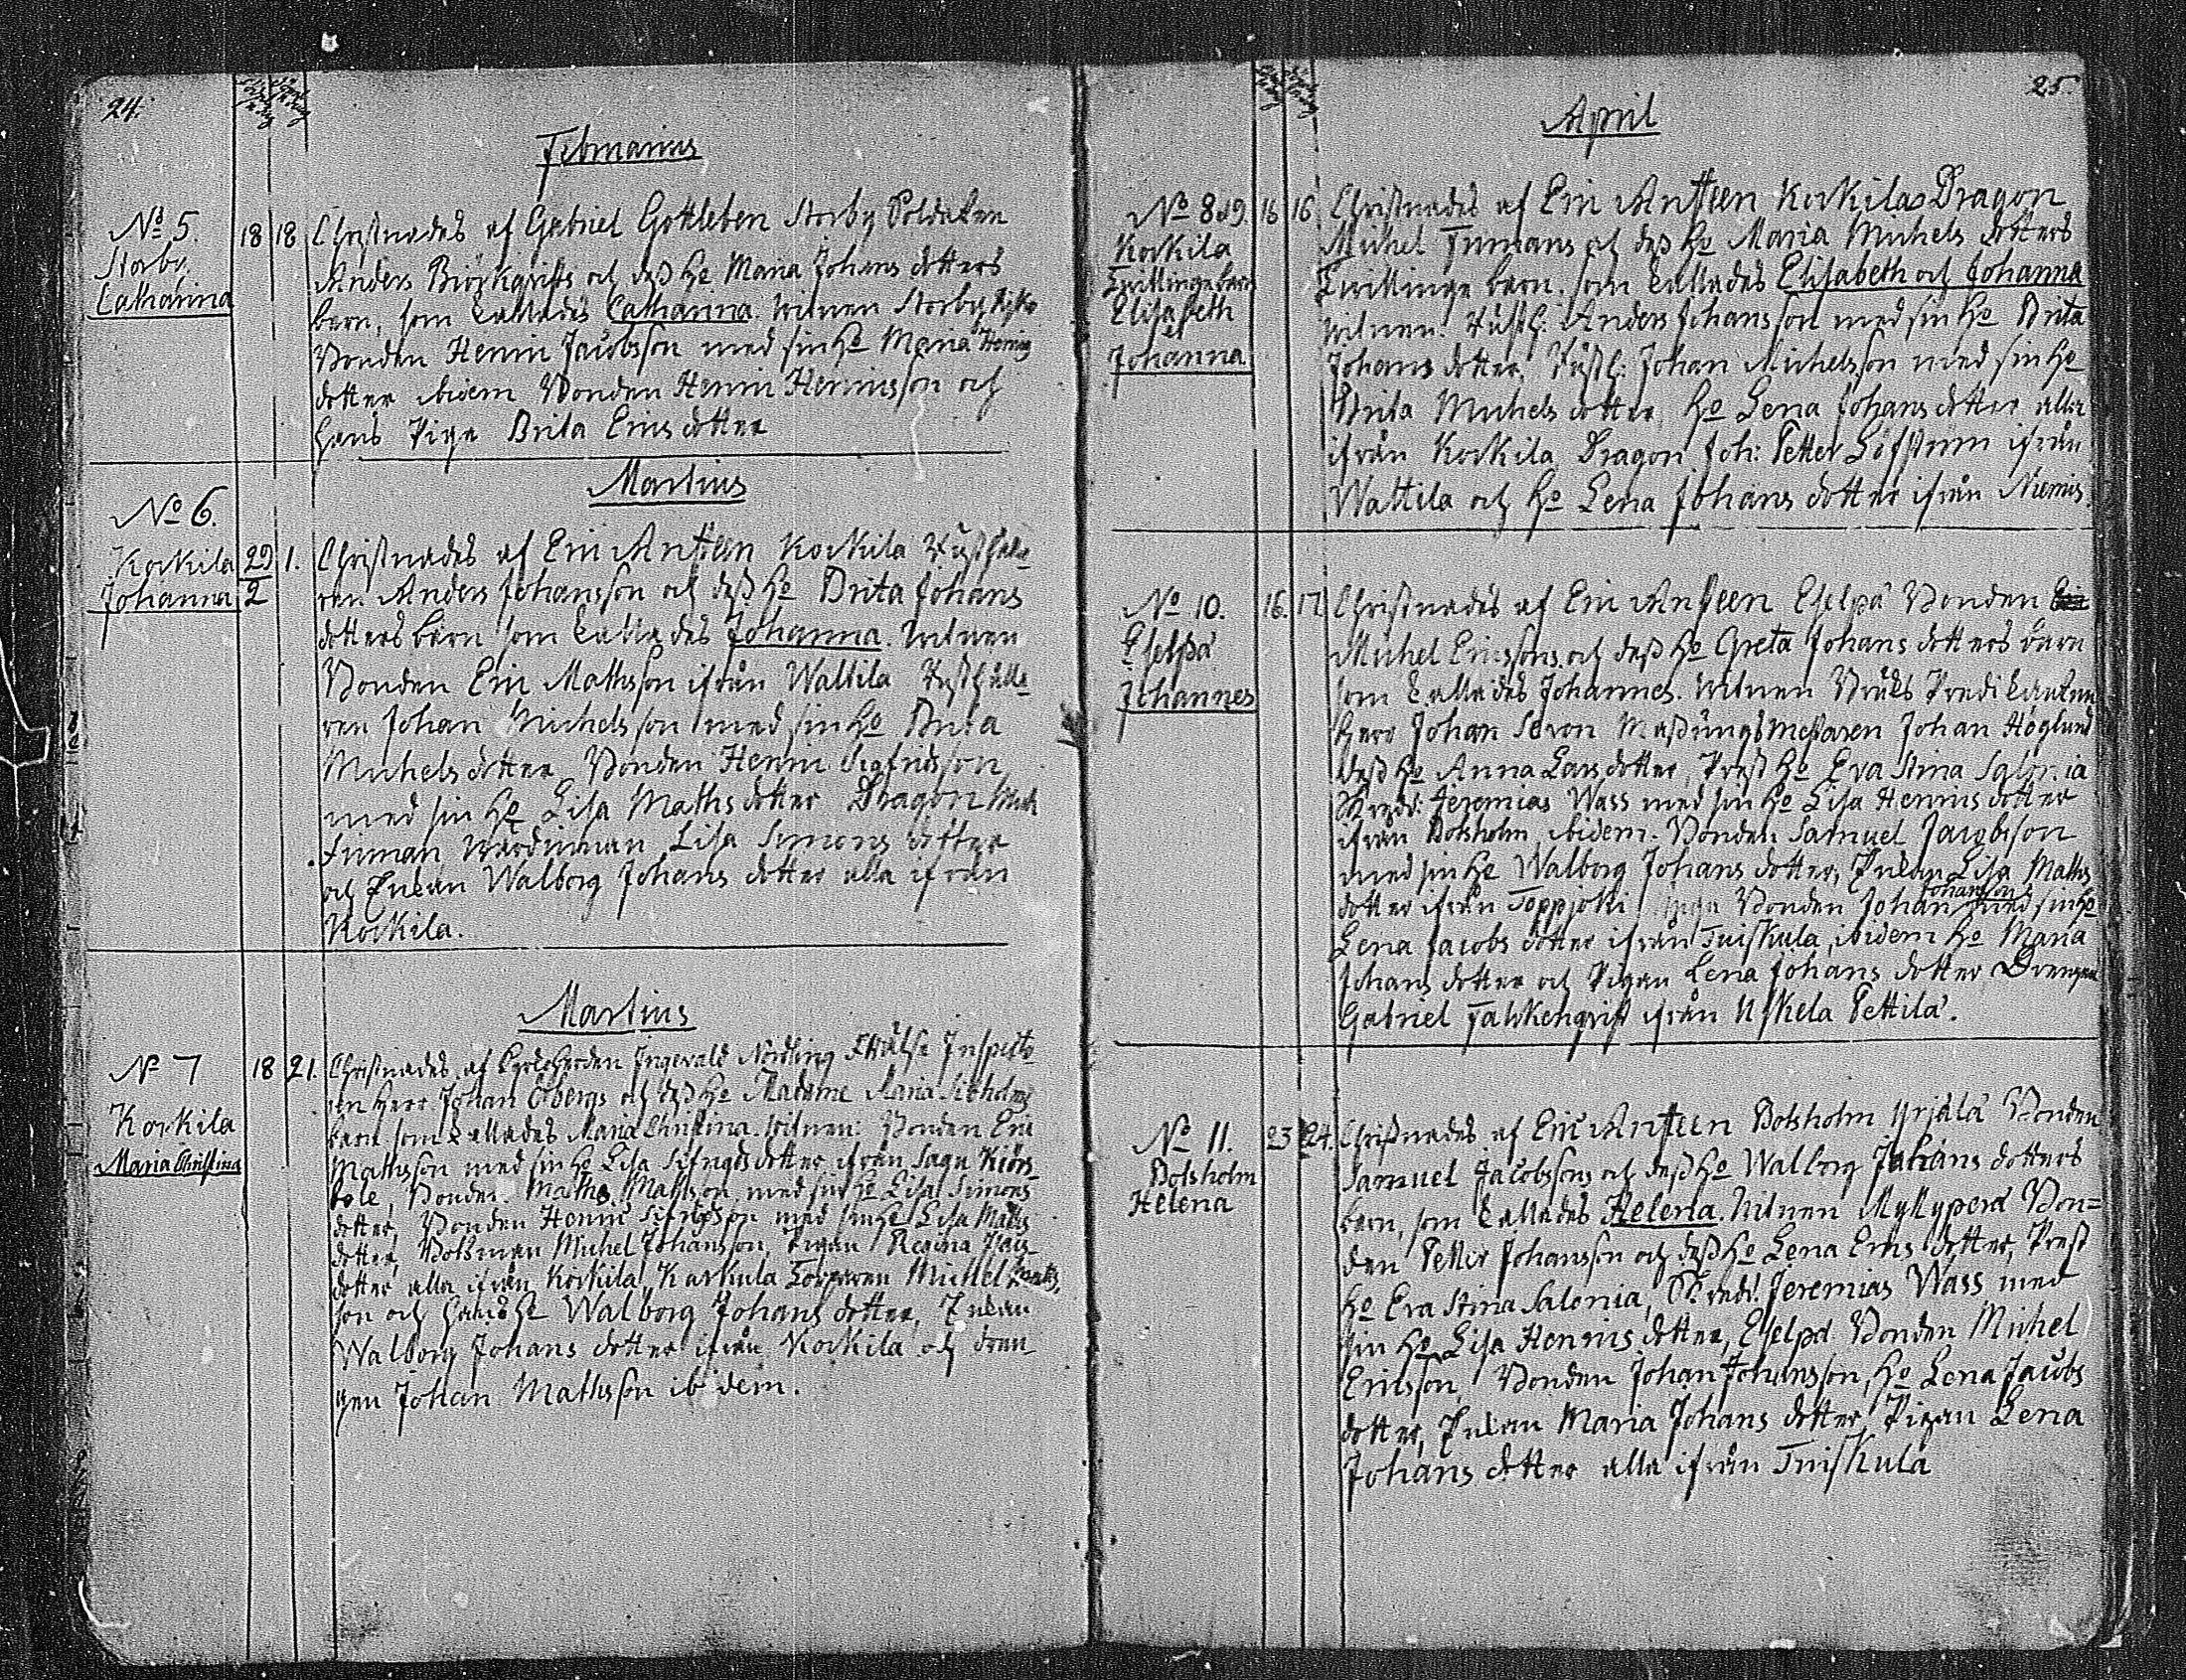 24.
Februarius
No 5.
Storby
Catharina
18 18
Christnades af Gabriel Gottleben Storby Soldaten
Anders Biörkqvists och dess Ho Maria Johans dotters
barn, som kallades Catharina. Witnen Storby
Bonden Henric Jacobsson med sin Ho Maria Henrics
dotter ibidem Bonden Henric Henricsson och
hans Piga Brita Erics dotter
Martius
No 6.
Korkila
Johanna
29/2 1.
Christnades af Eric Anteen Korkila Rusthålla-
ren Anders Johansson och dess Ho Brita Johans
dotters barn som kallades Johanna. Witnen
Bonden Eric Mathsson ifrån Wattila Rusthålla-
ren Johan Michelsson med sin Ho Brita
Michels dotter Bonden Henric Sigfridsson
med sin Ho Lisa Maths dotter Dragon Mich
Finman Lisa Simons dotter
och Enkan Walborg Johans dotter alla ifrån
Korkila.
Martius
No 7
Korkila
Maria Christina
18 21.
Christnades af Kyrckoherden Ingevald Nordling Inspecto
ren Herr Johan Öbergs och dess Ho Madame Maria
barn som kallades Maria Christina. Witnen: Bonden Eric
Mathsson med sin Ho Lisa Sifrids dotter ifrån Sagu Kiörs-
Bonden Maths Mathsson med sin Ho Lisa Simons
dotter, Bonden Henric Sifridsson med sin Ho Lisa Maths
dotter, Båtsman Michel Johansson, Pigan Regina
dotter alla ifrån Korkila, Karkula Torparen Michel Maths
son och hans Ho Walborg Johans dotter, Enkan
Walborg Johans dotter ifrån Korkila och dren
gen Johan Mathsson ibidem.
25.
April
No 8 & 9.
Korkila
Twillingebarn
Elisabeth
et
Johanna
16 16
Christnades af Eric Anteen Korkilas Dragon
Michel Finmans och dess Ho Maria Michels dotters
Twillinge barn. som kallades Elisabeth och Johanna
Witnen. Rusth: Anders Johansson med sin Ho Brita
Johans dotter, Rusth: Johan Michelsson med sin Ho
Brita Michels dotter, Ho Lena Johans dotter alla
ifrån Korkila, Dragon Joh: Petter Löfström ifrån
Wattila och Ho Lena Johans dotter ifrån Niemis.
No 10.
Eselpä
Johannes
16. 17
Christnades af Eric Anteen Eselpä Bonden
Michel Ericssons och dess Ho Greta Johans dotters barn
som kallades Johannes. Witnen Bruks Predikanten
Herr Johan Massungsmestaren Johan Höglund
dess Ho Anna Larsdotter, Prest Ho Eva Stina Salonia
Jeremias Wass med sin Ho Lisa Henrics dotter
ifrån Botsholm ibidem. Bonden Samuel Jacobsson
med sin Ho Walborg Johans dotter, Enkan Lisa Maths
dotter ifrån Toppjoki Bonden Johan Johansson med sin Ho
Lena Jacobs dotter ifrån Tuiskula, ibidem Ho Maria
Johans dotter och Pigan Lena Johans dotter Drengen
Gabriel Falckenqvist ifrån Uskela Pettilä.
No 11.
Botsholm
Helena
23 24.
Christnades af Eric Anteen Botsholm Yrjälä Bonden
Samuel Jacobssons och dess Ho Walborg Johans dotters
barn, som kallades Helena. Witnen Mykyperä Bon=
den Petter Johansson och dess Ho Lena Erics dotter, Prest
Ho Eva Stina Salonia, Jeremias Wass med
sin Ho Lisa Henrics dotter, Eselpä Bonden Michel
Ericsson, Bonden Johan Johansson, Ho Lena Jacobs
dotter, Enkan Maria Johans dotter, Pigan Lena
Johans dotter alla ifrån Tuiskula